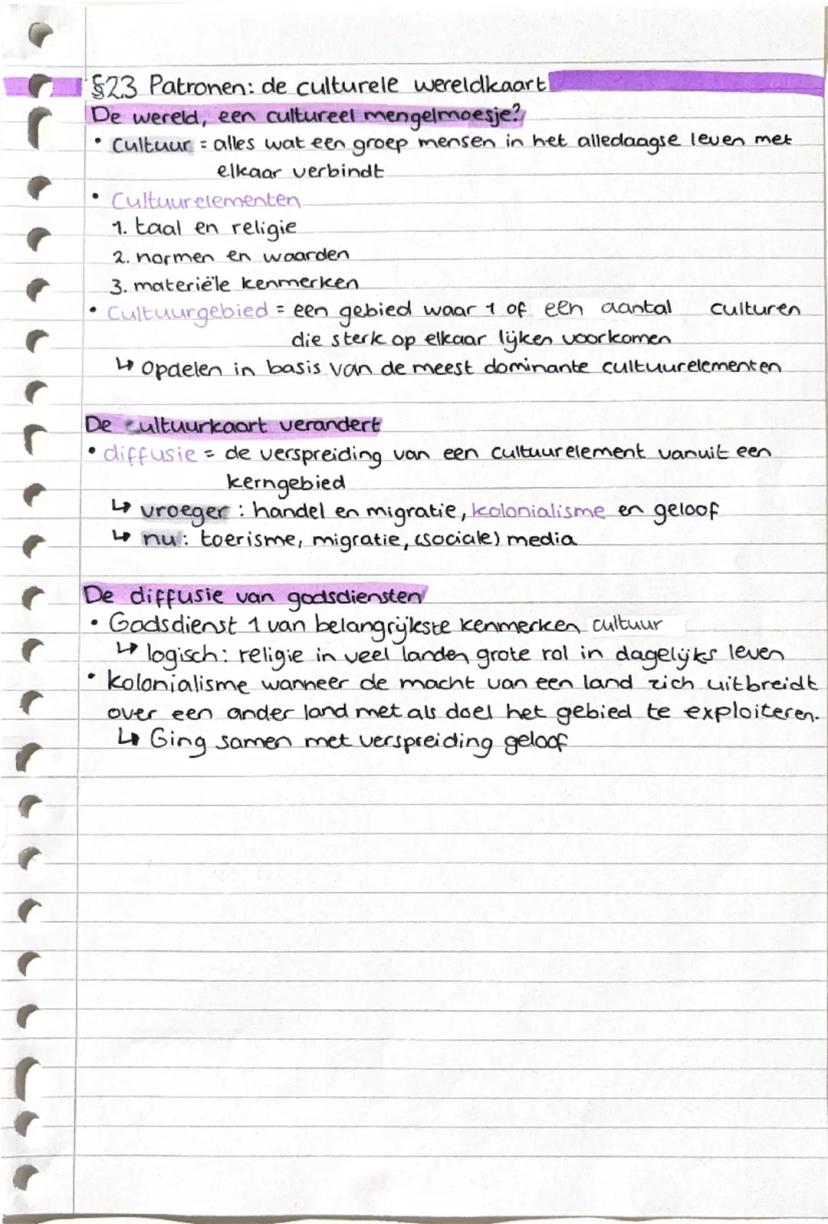 §23 Patronen: de culturele wereldkaart
De wereld, een cultureel mengelmoesje?
• Cultuur = alles wat een groep mensen in het alledaagse leven met
elkaar verbindt
• Cultuurelementen
1. taal en religie
2. normen en waarden
3. materiële kenmerken
• Cultuurgebied = een gebied waar 1 of een aantal culturen
die sterk op elkaar lijken voorkomen
↳ Opdelen in basis van de meest dominante cultuurelementen
De cultuurkaart verandert
• diffusie = de verspreiding van een cultuurelement vanuit een
kerngebied
↳ vroeger : handel en migratie, kolonialisme en geloof
↳ nu : toerisme, migratie, (sociale) media
De diffusie van godsdiensten
• Godsdienst 1 van belangrijkste kenmerken cultuur
↳ logisch: religie in veel landen grote rol in dagelijks leven
• kolonialisme wanneer de macht van een land zich uitbreidt
over een ander land met als doel het gebied te exploiteren.
↳ Ging samen met verspreiding geloof